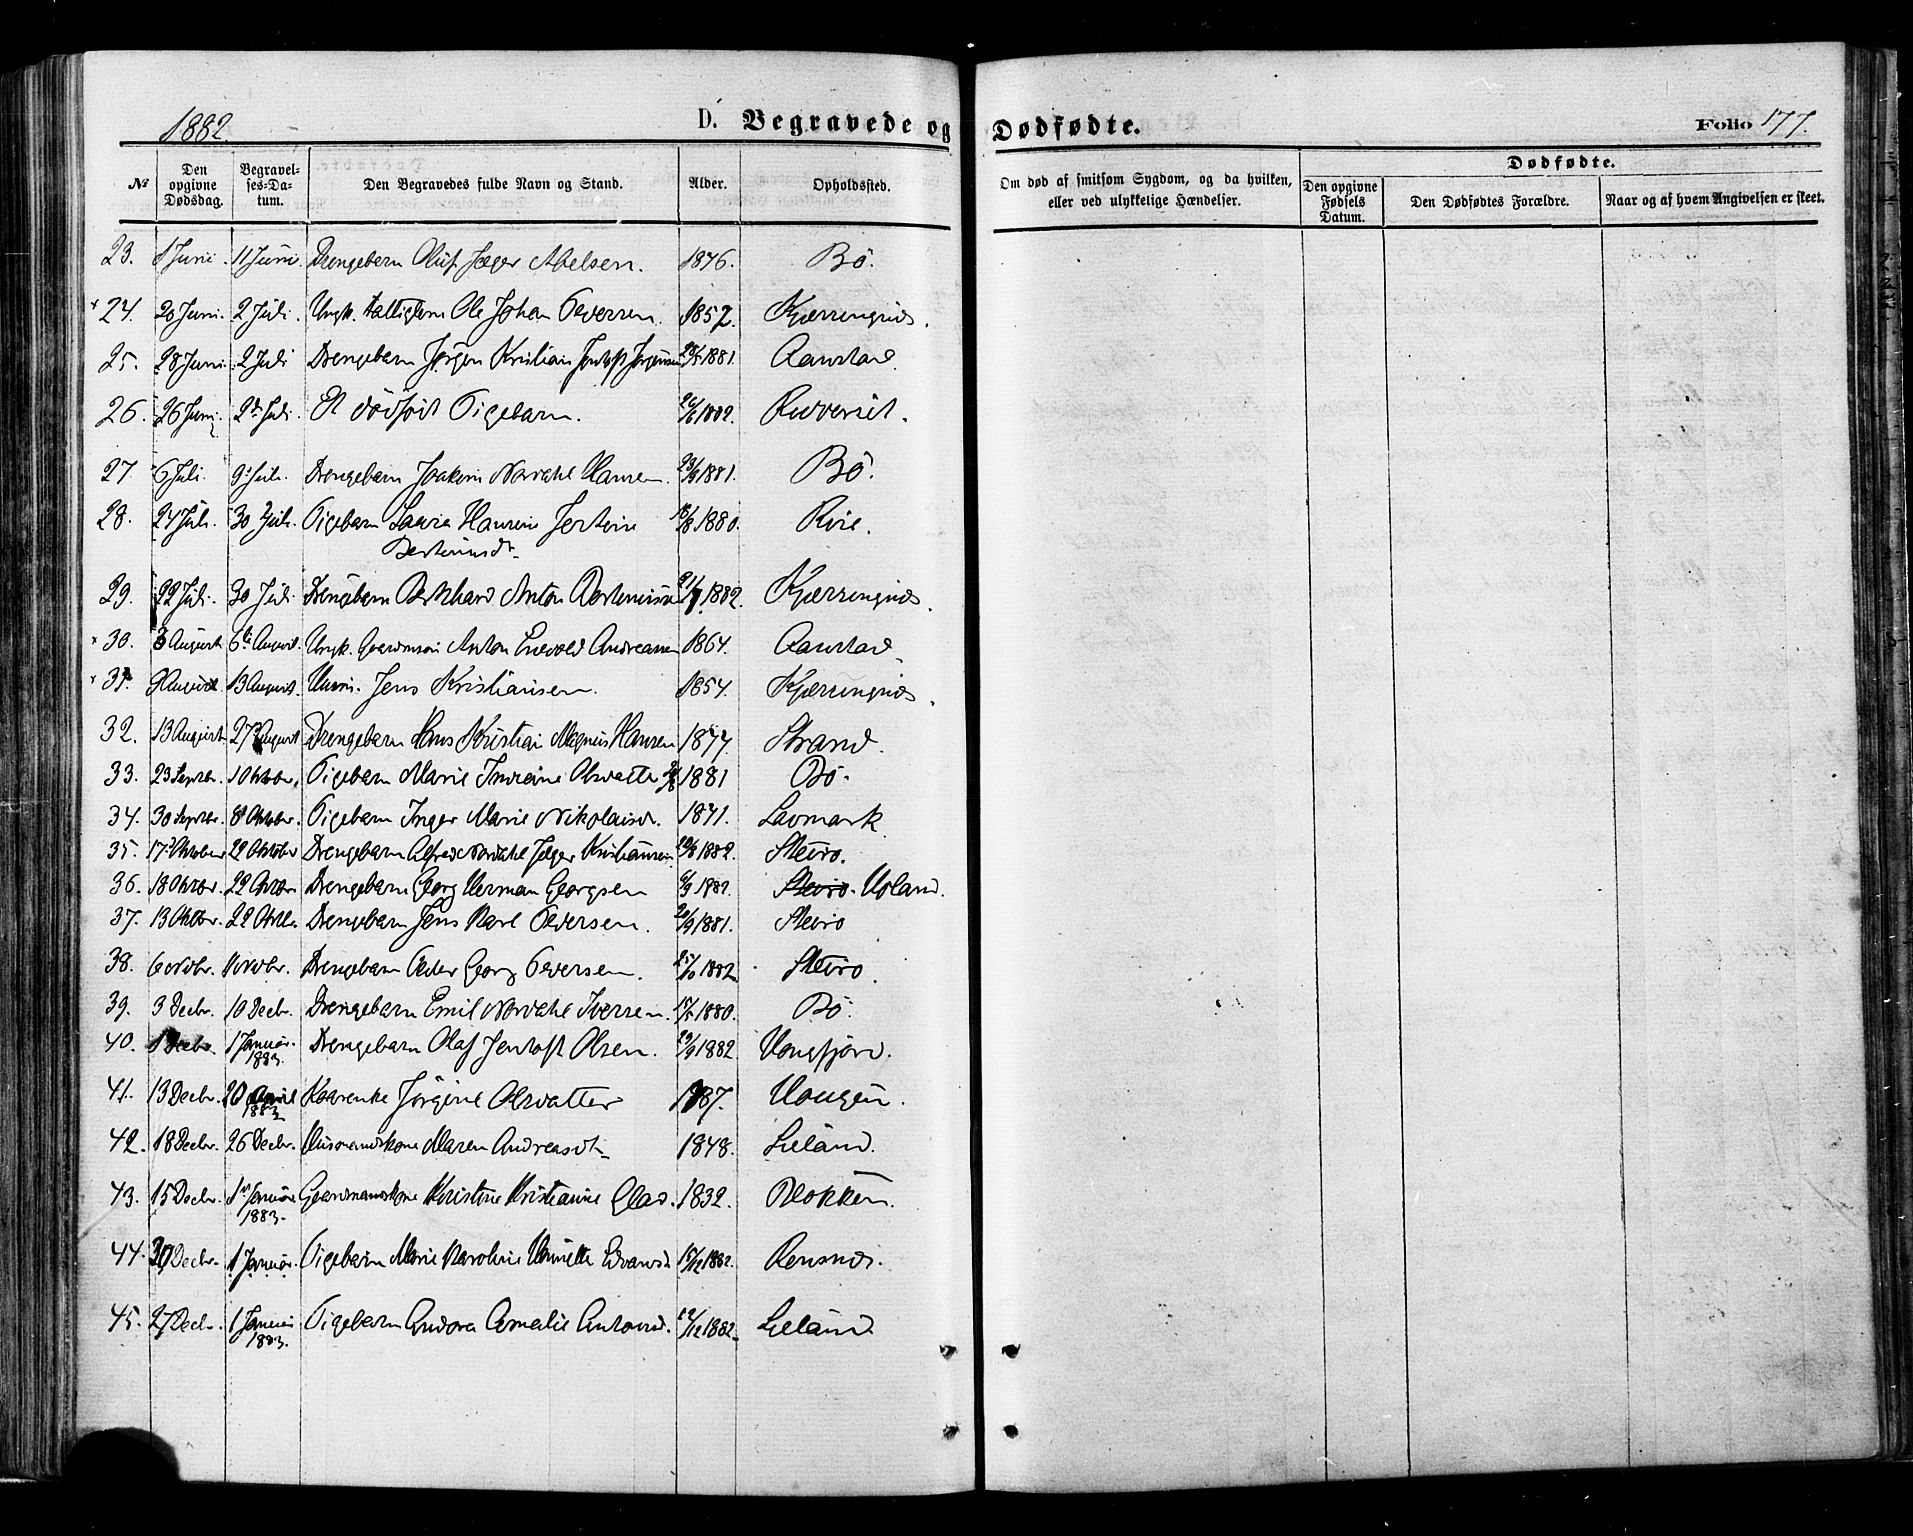 1882. D. Begravede og Dødfødte. Folio 177.
№ Den opgivne Dødsdag. Begravelses-Datum. Den Begravedes fulde Navn og Stand. Alder. Opholdssted. Om død af smitsom Sygdom, og da hvilken, eller ved ulykkelige Hændelser. Dødfødte. Den opgivne Fødsels Datum. Den Dødfødtes Forældre. Naar og af hvem Angivelsen er skeet.
23. 1 Juni. 11 Juni. Drengebarn Oluf Jæger Abelsen. 1876. Bö.
24. 20 Juni. 2 Juli Ungk. Ole Johan Pedersen. 1857. Kjærringnæs.
25. 28 Juni. 2 Juli Drengebarn Jørgen Kristian Jentoft Jørgensen 1881. Aanstad
26. 26 Juni. 2den Juli Et dödfödt Pigebarn. 26/6 1882.
27. 6 Juli. 9de Juli. Drengebarn Joakim Nordahl Hansen. 23/9 1881. Bö.
28. 24 Juli. 30 Juli. Pigebarn Laura Hansine 18/8 1880.
29. 22 Juli. 30 Juli. Drengebarn Anton 1882. Kjærringnæs.
30. 3 August 6te August. Ungk. Gaardmsøn Anton Enevold Andreassen 1864. Aanstad.
31. 9 August. 13 August. Jens Kristiansen. 1854. Kjærringnæs.
32. 13 August. 27 August Drengebarn Hans Kristian Magnus Hansen 1877. Strand.
33. 23 Septbr. 1 Oktober. Pigebarn Marie Olsdatter 1881 Bö.
34. 30 Septbr. 8 Oktober. Pigebarn Inger Marie Nikolaisd. 1871.
35. 17 Oktober 22 Oktober Drengebarn Alfred Nordahl Jæger Kristiansen. 1882. Steiro.
36. 18 Oktbr. 22 Oktbr Drengebarn Georg Herman Georgsen 6/9 1882. Steiro.
37. 13 Oktbr. 22 Oktbr. Drengebarn Jens Karl Pedersen. 20/9 1881. Steiro
38. 6 Novbr. Novbr. Drengebarn Peder Georg Pedersen. 25/10 1882 Steiro.
39. 3 Decbr. 10 Decbr. Drengebarn Emil Nordahl Iversen. 1880. Bö.
40. 1 Decbr. 1 Januar. 1883. Drengebarn Olaf Jentoft Olsen. 29/9 1882 Vongfjord.
41. 13 Decbr. 20 April 1883 Kaarenke Jörgine Olsdatter Haugen.
42. 18 Decbr. 26 Decbr. Husmandskone Maren Andreasdt. 1848. Lieland.
43. 15 Decbr. 1 Januar 1883. Gaardmandskone Kristine Kristianne Glad. 1832. Blokken.
44. 30 Decbr. 1 Januar. Pigebarn Marie Karoline Edvardsd. 15/12 1882. Rensnæs.
45. 27 Decbr. 1 Januar 1883. Pigebarn Andora Amalie Antonsd. 12/12 1882. Lieland.